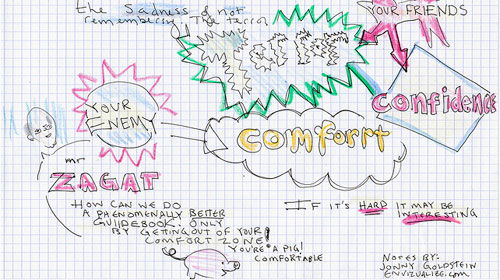 the Sadness of not
remembering The terror
YOUR FRIENDS
Confidence
YOUR
ENEMY
comforrt
mr
ZAGAT
HOW CAN WE DO
A PHENOMENALLY BETTER
GUIIDEBOOK. ONLY
BY GETINGOUT OF YOUR
COMFORT ZONE!
YOU'RE A PIG!
COMFORTABLE
IF IT'S HARD IT MAY BE
INTERESTING
NOTES BY:
JONNY GOLDSTEIN
ENVIZUALIZE.COM